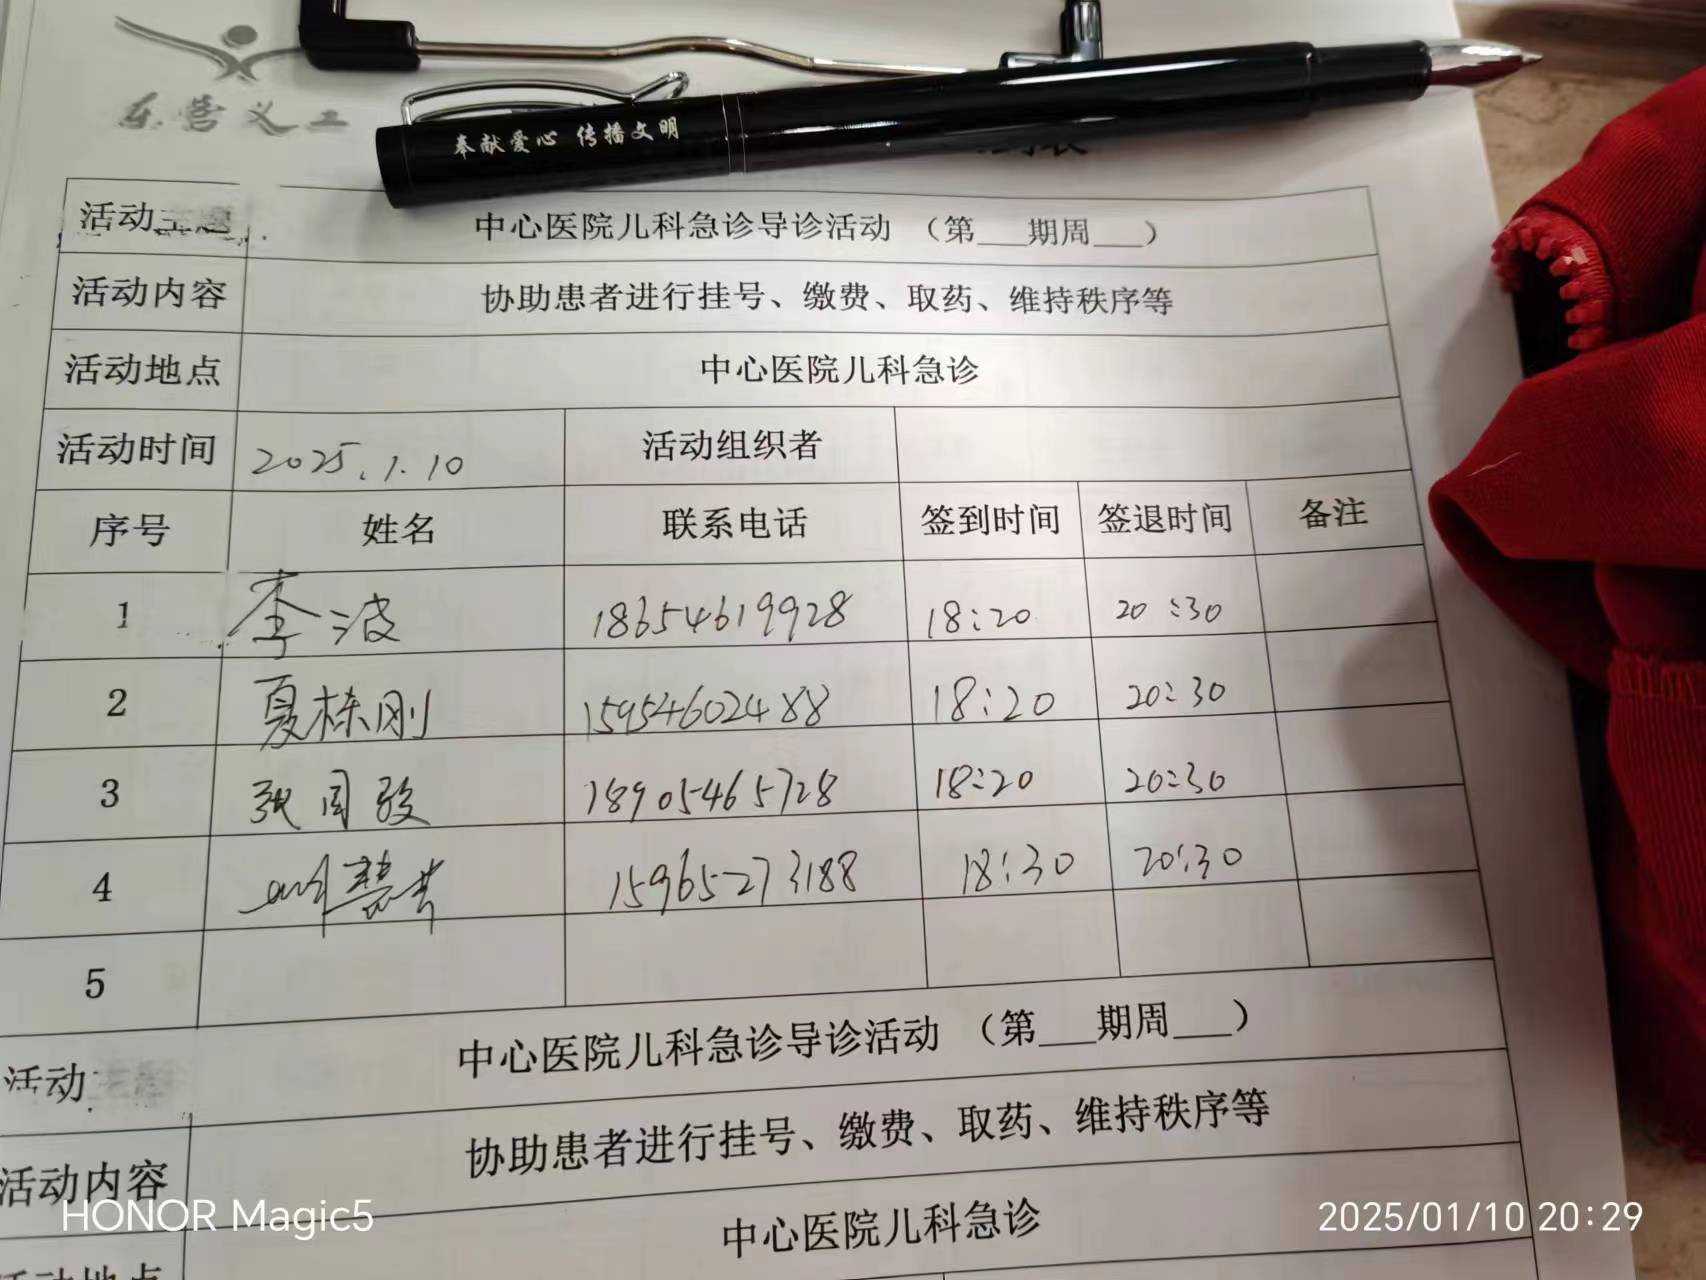 东营义工
奉献爱心 传播文明
到表
活动主题 中心医院儿科急诊导诊活动 （第___期周___）
活动内容 协助患者进行挂号、缴费、取药、维持秩序等
活动地点 中心医院儿科急诊
活动时间 2025.1.10 活动组织者
序号 姓名 联系电话 签到时间 签退时间 备注
1 李波 18654619928 18:20 20:30
2 夏栋刚 15954602488 18:20 20:30
3 张国骏 18905465728 18:20 20:30
4 15965273188 18:30 20:30
5
活动 中心医院儿科急诊导诊活动 （第___期周___）
活动内容 协助患者进行挂号、缴费、取药、维持秩序等
活动地点 中心医院儿科急诊
HONOR Magic5
2025/01/10 20:29